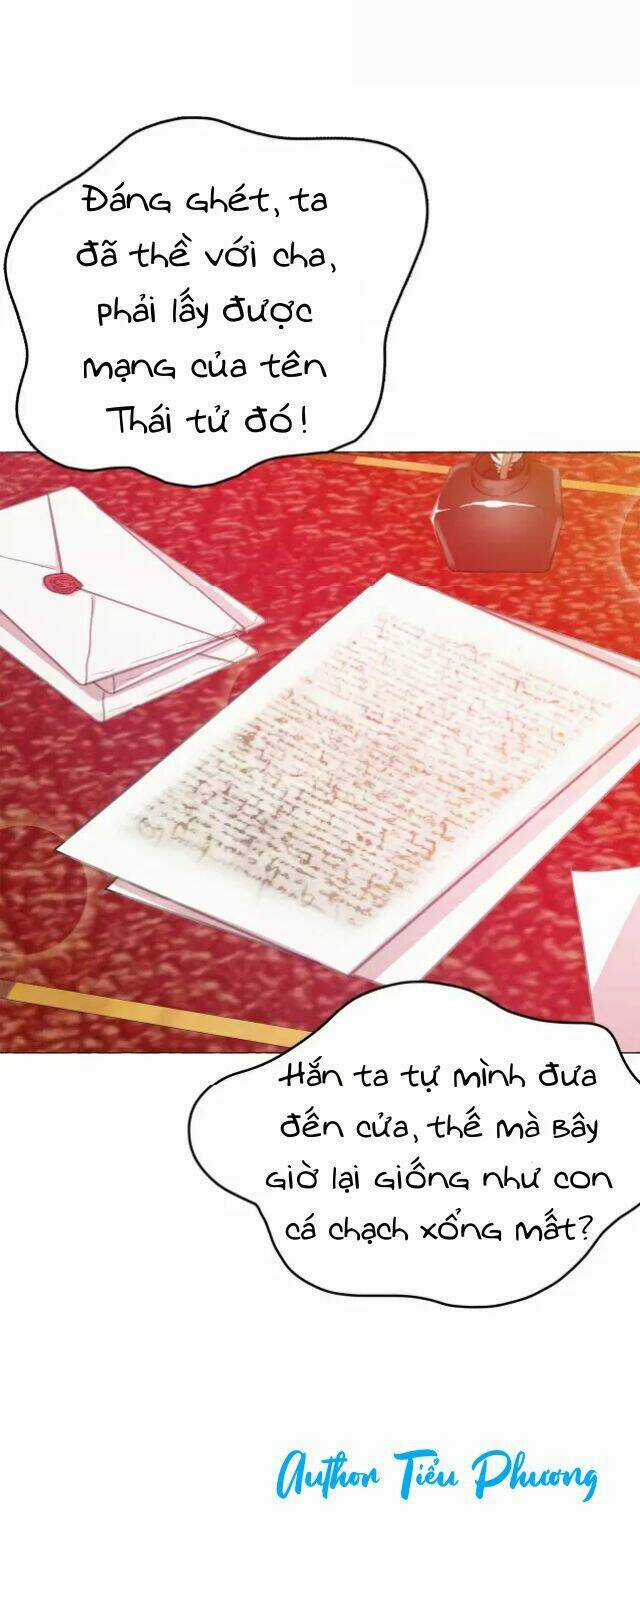 Đáng ghét, ta
đã thề với cha,
phải lấy được
mạng của tên
Thái tử đó!
Hắn ta tự mình đưa
đến cửa, thế mà bây
giờ lại giống như con
cá chạch xổng mất?
Author Tiểu Phương